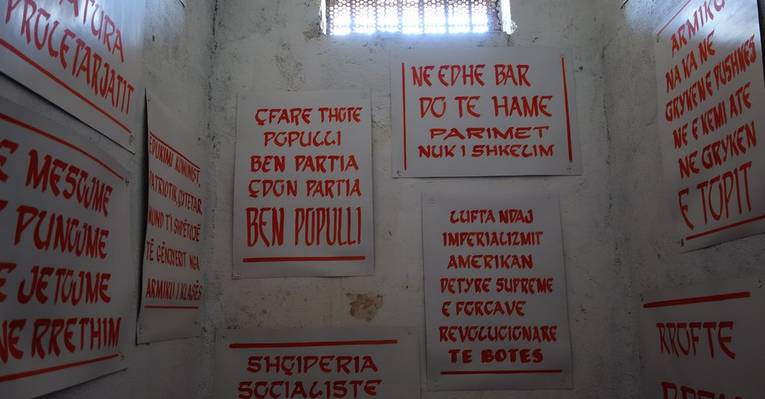 ATURA
PROLETARJATIT
E MESOJME
PUNOJME
E JETOJME
NE RRETHIM
EDUKIMI KOMUNIST,
PATRIOTIK QYTETAR
MUND TI SHPËTOJË
TË GËNJYERIT NGA
ARMIKU I KLASËS
ÇFARE THOTE
POPULLI
BEN PARTIA
ÇDON PARTIA
BEN POPULLI
NE EDHE BAR
DO TE HAME
PARIMET
NUK I SHKELIM
LUFTA NDAJ
IMPERIALIZMIT
AMERIKAN
DETYRE SUPREME
E FORCAVE
REVOLUCIONARE
TE BOTES
SHQIPERIA
SOCIALISTE
ARMIKU
NA KA NE
GRYKEN E PUSHKES
NE E KEMI ATE
NE GRYKEN
E TOPIT
RROFTE